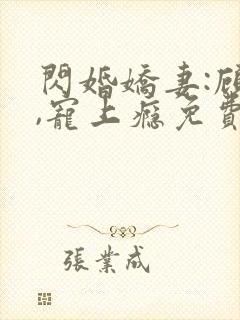 閃婚嬌妻:顧
,寵上癮免費
張業成